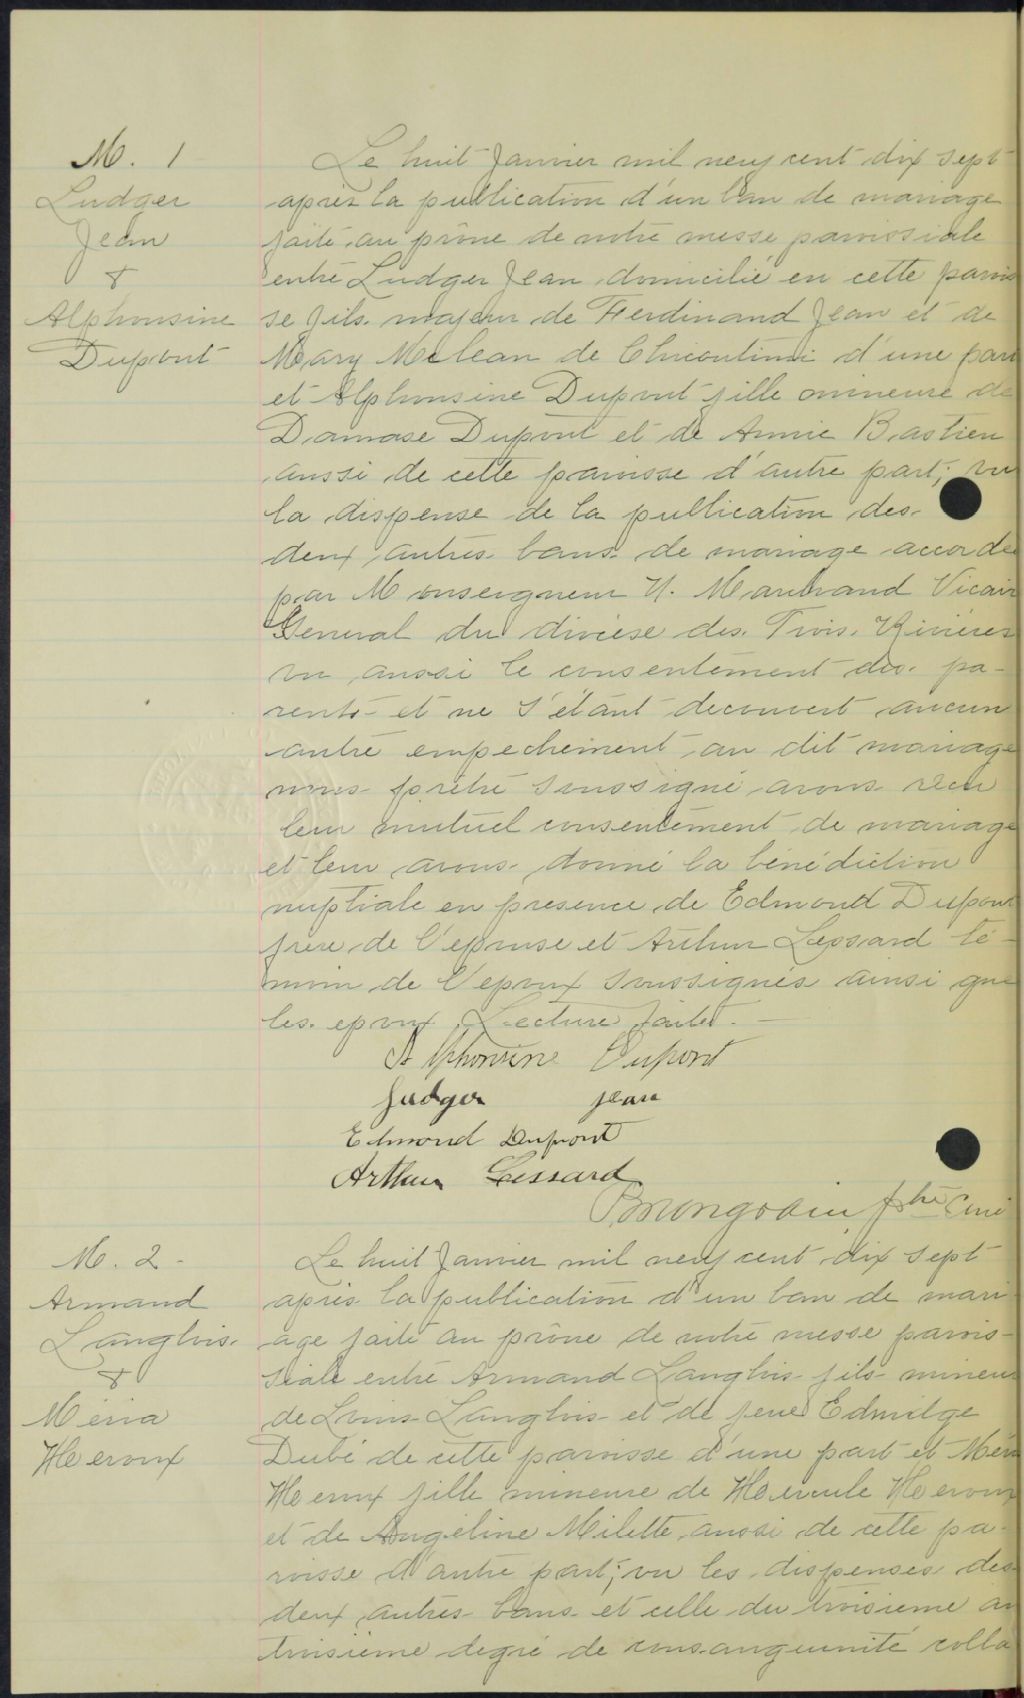 M. 1
Ludger
Jean
&
Alphonsine
Dupont
Le huit Janvier mil neuf cent dix sept
après la publication d'un ban de mariage
faite au prône de notre messe paroissiale
entre Ludger Jean domicilié en cette parois
se fils majeur de Ferdinand Jean et de
Mary McLean de Chicoutimi d'une part
et Alphonsine Dupont fille mineure de
Damase Dupont et de Annie Bastien
aussi de cette paroisse d'autre part; vu
la dispense de la publication des
deux autres bans de mariage accordée
par Monseigneur U. Marchand Vicaire
General du diocèse des Trois Rivières
vu aussi le consentement des pa-
rents et ne s'étant decouvert aucun
autre empechement au dit mariage
nous prêtre soussigné avons reçu
leur mutuel consentement de mariage
et leur avons donné la bénédiction
nuptiale en presence de Edmond Dupont
frère de l'epouse et Arthur Lessard té-
moin de l'epoux soussignés ainsi que
les epoux. Lecture faite.
Alphonsine Dupont
Ludger Jean
Edmond Dupont
Arthur Lessard
ptre Curé
M. 2
Armand
Langlois
&
Méria
Heroux
Le huit Janvier mil neuf cent dix sept
après la publication d'un ban de mari
age faite au prône de notre messe parois-
siale entre Armand Langlois fils mineur
de Louis Langlois et de feue Edwidge
Dubé de cette paroisse d'une part et Méria
Heroux fille mineure de Hercule Heroux
et de Angéline Milette aussi de cette pa-
roisse d'autre part; vu les dispenses des
deux autres bans et celle du troisieme au
troisième degré de consanguinité colla